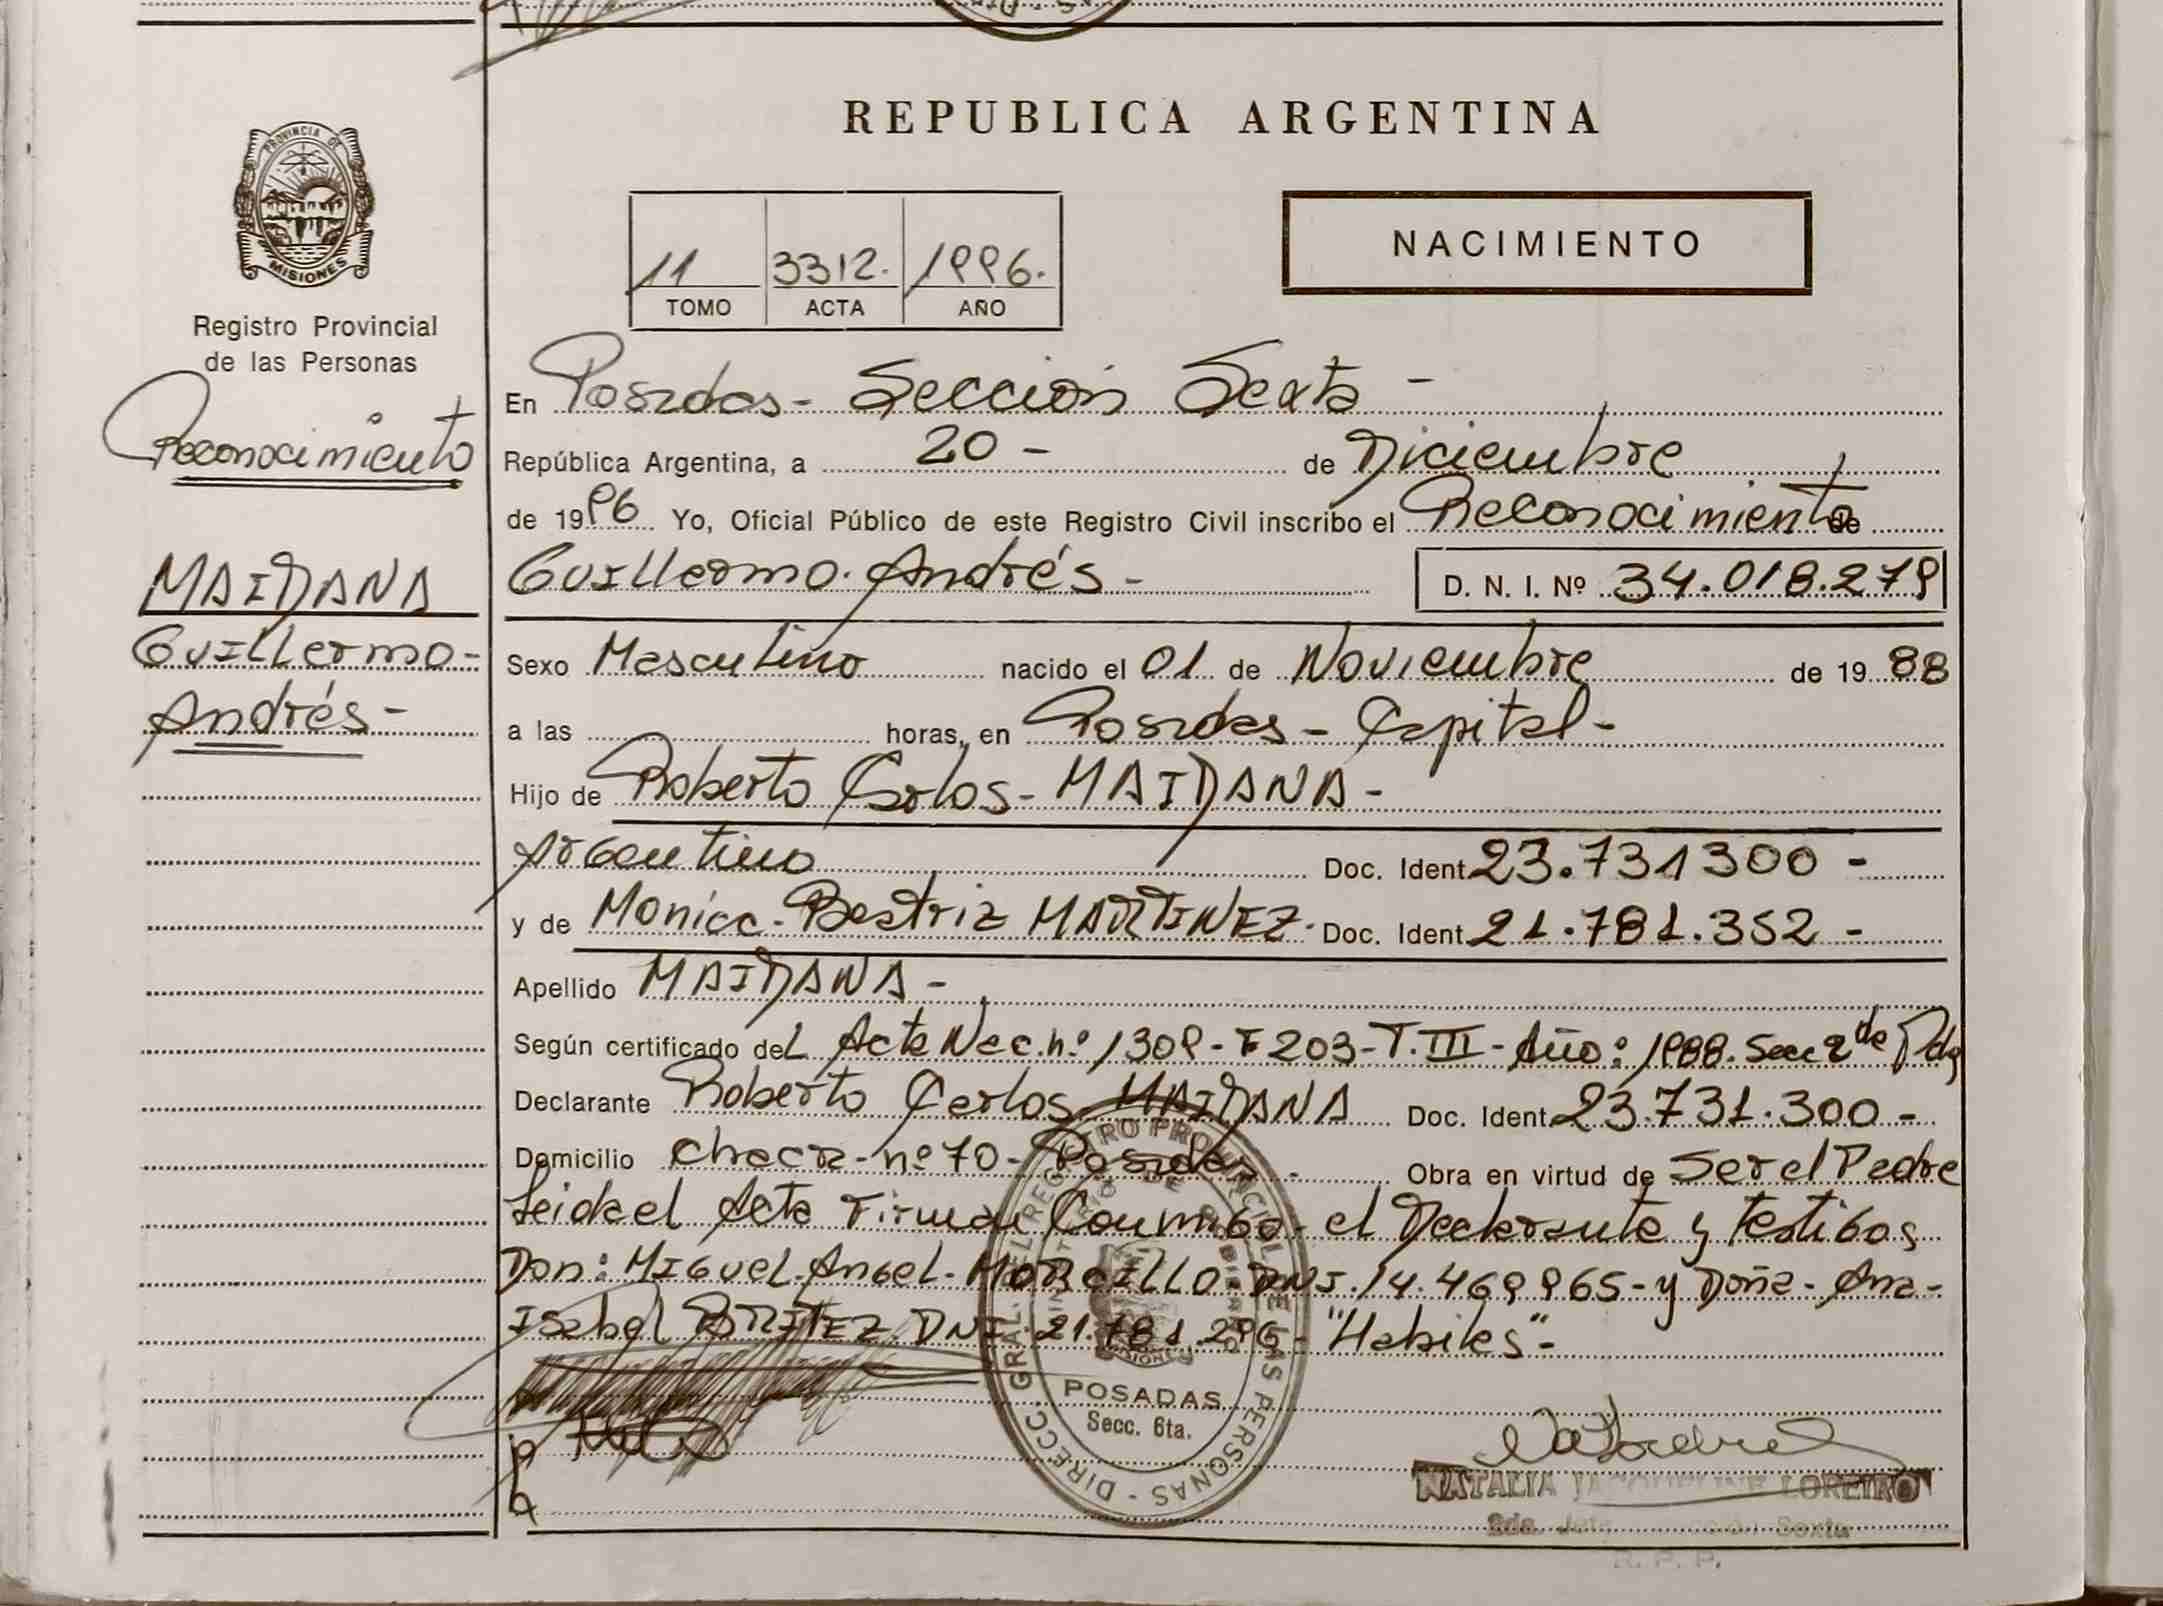 REPUBLICA ARGENTINA
PROVINCIA DE
MISIONES
Registro Provincial
de las Personas
Reconocimiento
MAIDANA
Guillermo-
Andrés-
NACIMIENTO
11 3312. 1996.
TOMO ACTA AÑO
En Posadas - Sección Sexta -
República Argentina, a 20 - de Diciembre
de 1996 Yo, Oficial Público de este Registro Civil inscribo el Reconocimiento de
Guillermo. Andrés - D. N. I. Nº 34.018.279
Sexo Masculino nacido el 01 de Noviembre de 1988
a las horas, en Posadas - Capital -
Hijo de Roberto Carlos - MAIDANA -
Argentino Doc. Ident. 23.731300 -
y de Monica - Beatriz MARTINEZ. Doc. Ident. 21.781.352 -
Apellido MAIDANA -
Según certificado del Acta Nac. nº 1309 - F 203 - T. III - Año: 1988. Secc 2da Pdas
Declarante Roberto Carlos MAIDANA Doc. Ident. 23.731.300 -
Domicilio Chacra - nº 70 - Posadas - Obra en virtud de Ser el Padre
Leida el Acta Firman Conmigo - el Declarante y Testigos
Don: Miguel - Angel - MORCILLO DNI. 14.469965 - y Doña - Ana -
Isabel BRITEZ DNI 21.781.296 - "Habiles" -
DIRECC. GRAL. DEL REGISTRO PROVINCIAL DE LAS PERSONAS
MISIONES
POSADAS
Secc. 6ta.
NATALIA JACQUELINE LOREIRO
Sexta
R. P. P.